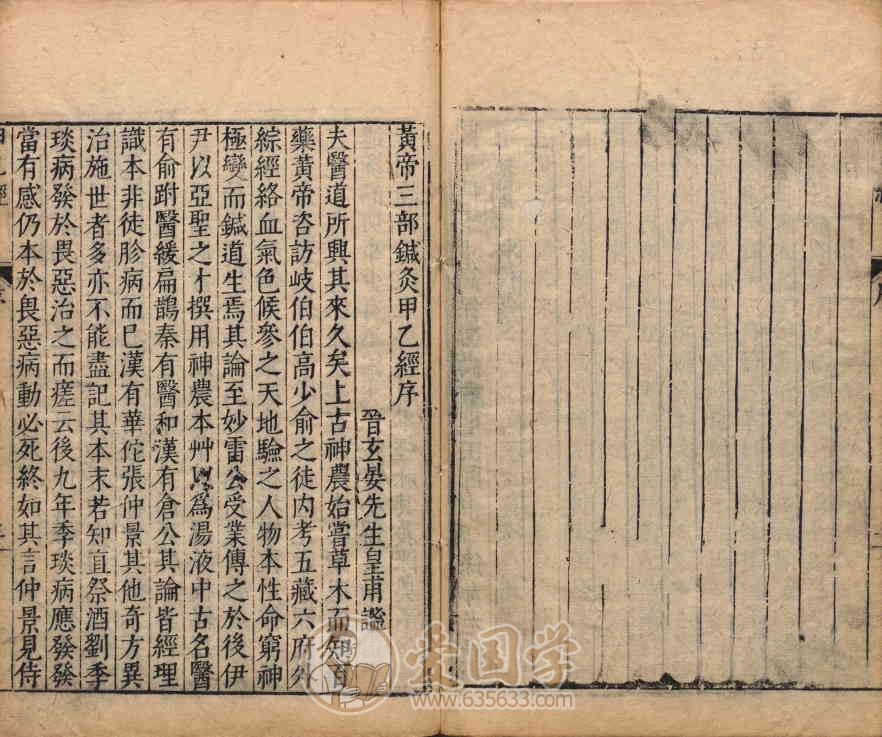 黃帝三部鍼灸甲乙經序
晉玄晏先生皇甫謐
夫醫道所興其來久矣上古神農始嘗草木而知百
藥黃帝咨訪岐伯伯高少俞之徒內考五藏六府外
綜經絡血氣色候參之天地驗之人物本性命窮神
極變而鍼道生焉其論至妙雷公受業傳之於後伊
尹以亞聖之才撰用神農本艸以爲湯液中古名醫
有俞跗醫緩扁鵲秦有醫和漢有倉公其論皆經理
識本非徒胗病而已漢有華佗張仲景其他奇方異
治施世者多亦不能盡記其本末若知直祭酒劉季
琰病發於畏惡治之而瘥云後九年季琰病應發發
當有感仍本於畏惡病動必死終如其言仲景見侍
甲乙經
序
序
爱国学
www.635633.com